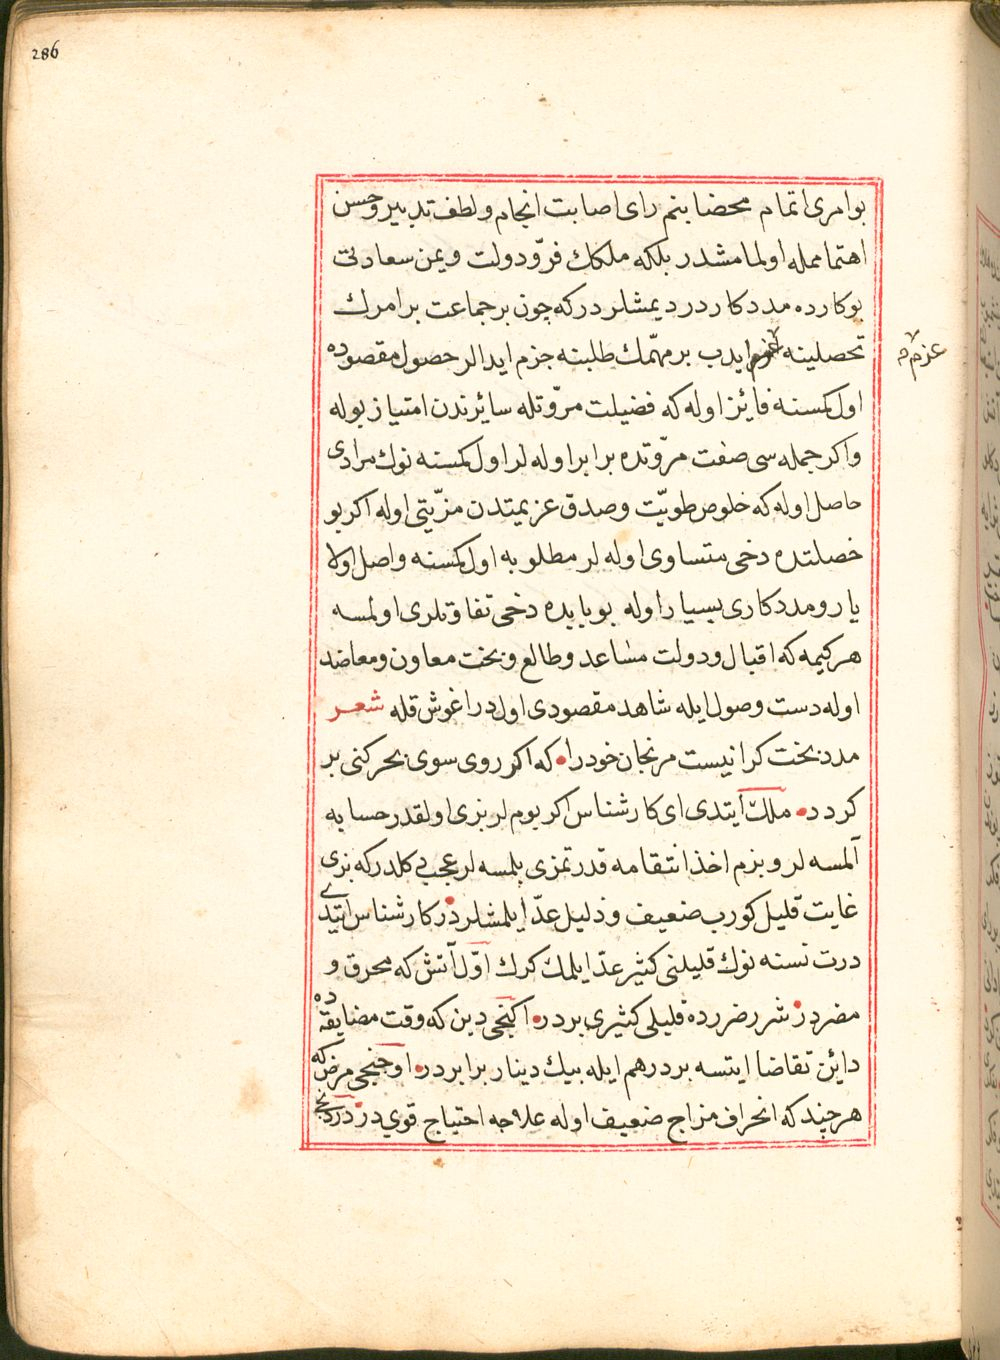 286
بو امری اتمام محضا بنم رای اصابت انجام و لطف تدبیر و حسن
اهتمامله اولمامشدر بلکه ملکك فرّ و دولت و یمن سعادتی
بو کارده مددکاردر دیمشلردر که چون بر جماعت بر امرك
تحصلینه عزم ایدب بر مهمّك طلبنه جزم ایدالر حصول مقصوده
عزم صح
اول کمسنه فائز اوله که فضیلت مروّتله سائرندن امتیاز بوله
و اکر جمله سی صفت مروّتده برابر اوله لر اول کمسنه نوك مرادی
حاصل اوله که خلوص طویّت و صدق عزیمتدن مزیّتی اوله اکر بو
خصلتده دخی متساوی اوله لر مطلوبه اول کمسنه واصل اولا
یار و مددکاری بسیار اوله بو بابده دخی تفاوتلری اولمسه
هر کیمه که اقبال و دولت مساعد و طالع و بخت معاون و معاضد
اوله دست وصول ایله شاهد مقصودی اول در اغوش قله شعر
مدد بخت کرانیست مرنجان خود را که اکر روی سوی بحر کنی بر
کردد ملك آیتدی ای کارشناس اکر بوم لر بزی اولقدر حسابه
آلمسه لر و بزم اخذ انتقامه قدرتمزی بلمسه لر عجب دکلدر که بزی
غایت قلیل کورب ضعیف و ذلیل عدّ ایلمشلردر کارشناس ایتدی
درت نسنه نوك قلیلنی کثیر عدّ ایلمك کرك اوّل آتش که محرق و
مضردر شرر ضررده قلیلی کثیری بردر اکنجی دین که وقت مضایقه ده
دائن تقاضا ایتسه بر درهم ایله بیك دینار برابردر اوجنجی مرض که
هر چند که انحراف مزاج ضعیف اوله علاجه احتیاج قویدر دردنجی